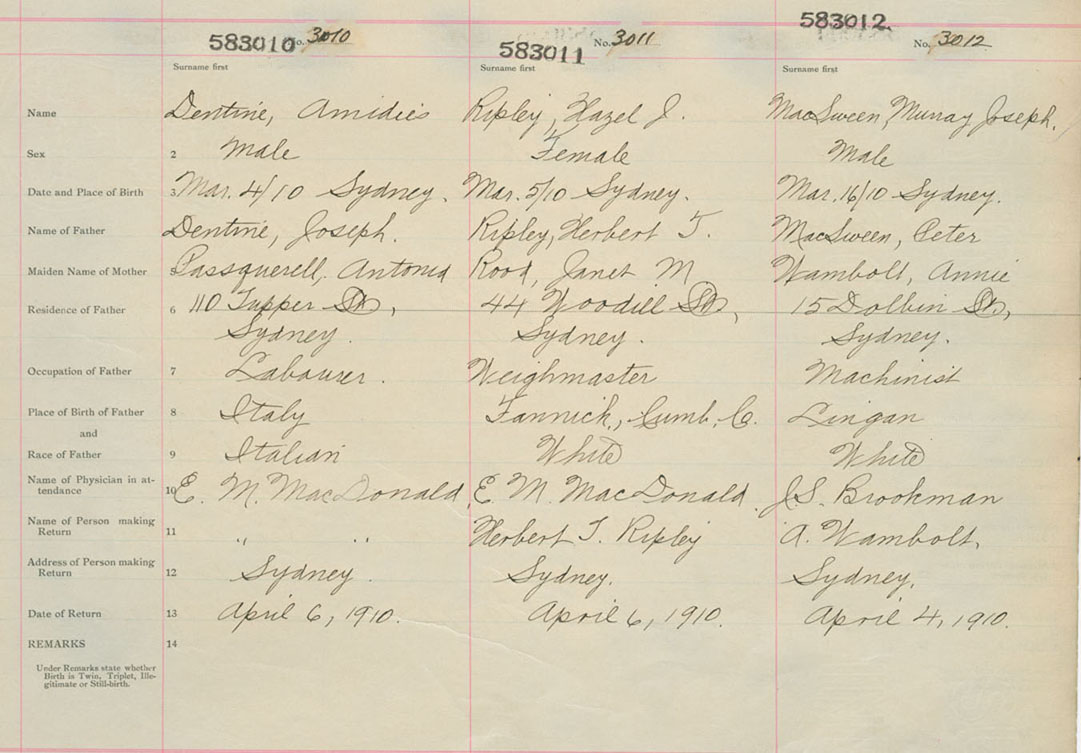 583010 No. 3010 583011 No. 3011 583012 No. 3012
Surname first Surname first Surname first
Name Dentine, Amidies Ripley, Hazel J. MacSween, Murray Joseph.
Sex 2 Male Female Male
Date and Place of Birth 3 Mar. 4/10 Sydney. Mar. 5/10 Sydney. Mar. 16/10 Sydney.
Name of Father Dentine, Joseph. Ripley, Herbert T. MacSween, Peter
Maiden Name of Mother Passquerell, Antonia Rood, Janet M Wambolt, Annie
Residence of Father 6 110 Tupper St, 44 Woodill St, 15 Dolbin St,
Sydney. Sydney. Sydney.
Occupation of Father 7 Labourer. Weighmaster Machinist
Place of Birth of Father 8 Italy Fannick, Cumb. C. Lingan
and
Race of Father 9 Italian White White
Name of Physician in at-
tendance 10 E. M. MacDonald, E. M. MacDonald. J.S. Brookman
Name of Person making
Return 11 " " Herbert T. Ripley A. Wambolt.
Address of Person making
Return 12 Sydney. Sydney. Sydney.
Date of Return 13 April 6, 1910. April 6, 1910. April 4, 1910.
REMARKS 14
Under Remarks state whether
Birth is Twin, Triplet, Ille-
gitimate or Still-birth.